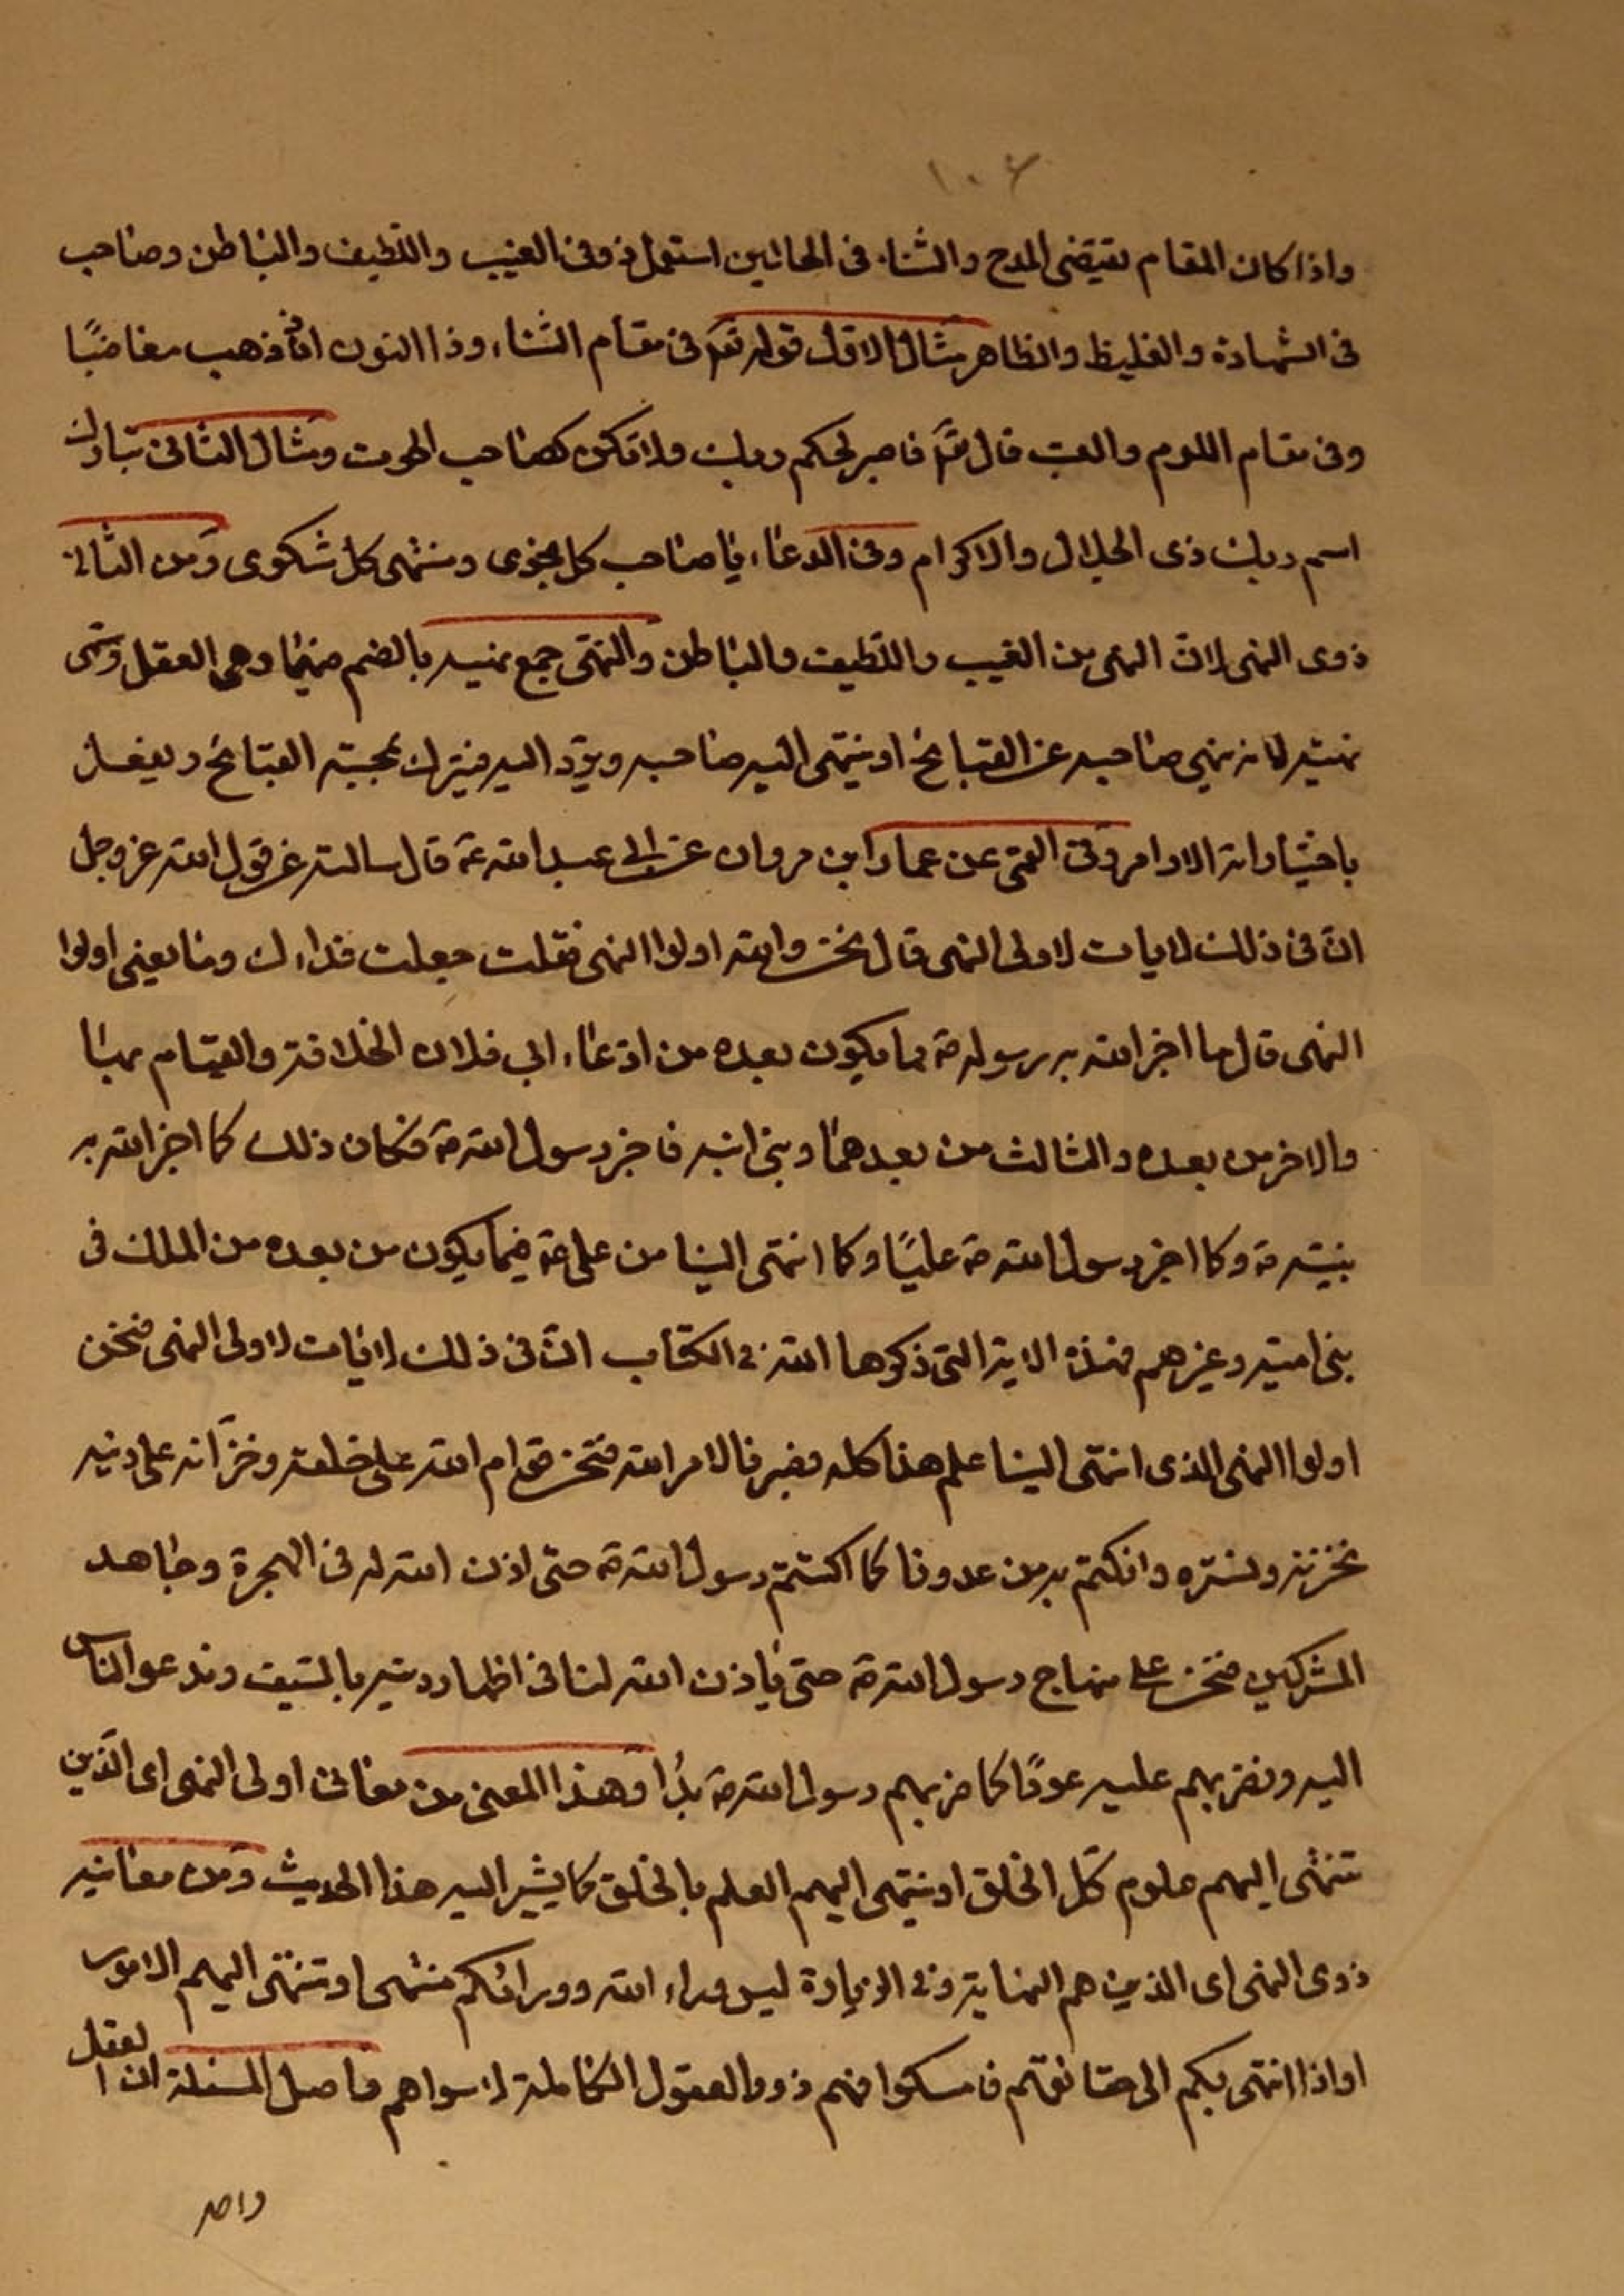 ١٠٤
واذا كان المقام يقتضى المدح والثناء فى الحالين استعمل ذو فى الغيب واللطيف والباطن وصاحب
فى الشهادة والغليظ والظاهر مثال الاوّل قوله تع فى مقام الثناء وذا النون اذ ذهب مغاضبًا
وفى مقام اللوم والعتب قال تع فاصبر لحكم ربك ولا تكن كصاحب الحوت ومثال الثانى تبارك
اسم ربك ذى الجلال والاكرام وفى الدعاء يا صاحب كل نجوى ومنتهى كل شكوى ومن الثانى
ذوى النهى لان النهى من الغيب واللطيف والباطن والنهى جمع نهيه بالضم فيهما وهى العقل وسمى
نهيته لانه ينهى صاحبه عن القبائح او ينتهى اليه صاحبه ويؤد اليه فيترك بمحبته القبائح ويفعل
باختياراته الاوامر وفى القمى عن عمار ابن مروان عن ابى عبد الله ع قال سالته عن قول الله عز وجل
انّ فى ذلك لايات لاولى النهى قال نحن والله اولوا النهى فقلت جعلت فداءك وما يعنى اولوا
النهى قال ما اخبر الله به رسوله ص بما يكون بعده من ادّعاء ابى فلان الخلافة والقيام بها
والاخر من بعده والثالث من بعدهما وبنى اميه فاخبر رسول الله ص فكان ذلك كما اخبر الله به
نبيّه ص وكما اخبر رسول الله ص عليًا وكما انتهى الينا من على ع فيما يكون من بعده من الملك فى
بنى اميّه وغيرهم فهذه الاية التى ذكرها الله فى الكتاب انّ فى ذلك لايات لاولى النهى فنحن
اولوا النهى الذى انتهى الينا علم هذا كله فصبرنا لامر الله فنحن قوام الله على خلقه وخزّانه على دينه
نخزنه ونستره ونكتم به من عدونا كما اكتتم رسول الله ص حتى اذن الله له فى الهجرة وجاهد
المشركين فنحن على منهاج رسول الله ص حتى ياذن الله لنا فى اظهار دينه بالسّيف وندعو الناس
اليه ونضربهم عليه عودًا كما ضربهم رسول الله ص بدًا وهذا المعنى من معانى اولى النهى اى الّذين
تنتهى اليهم علوم كل الخلق او ينتهى اليهم العلم بالخلق كما يشير اليه هذا الحديث ومن معانيه
ذوى النهى اى الذين هم النهاية وفى الزيادة ليس وراء الله وورائكم منتهى او تنتهى اليهم الامور
او اذا انتهى بكم الى حقائقهم فامسكوا فهم ذووا العقول الكاملة لا سواهم واصل المسئلة ان العقل
واحد